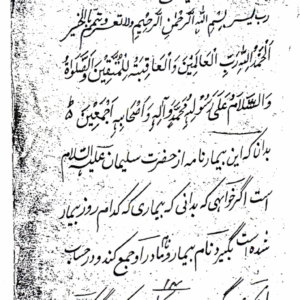 رب یسر بسم الله الرحمن الرحیم ولا تعسر وتمم بالخیر
الحمد لله رب العالمین والعاقبة للمتقین والصلوة
والسلام علی رسوله محمد وآله واصحابه اجمعین
بدانکه این بیمارنامه از حضرت سلیمان علیه السلام
است اگر خواهی که بدانی که بیماری که کدام روز بیمار
شده است بگیرد نام بیمار و نام مادر او جمع کند و در حساب